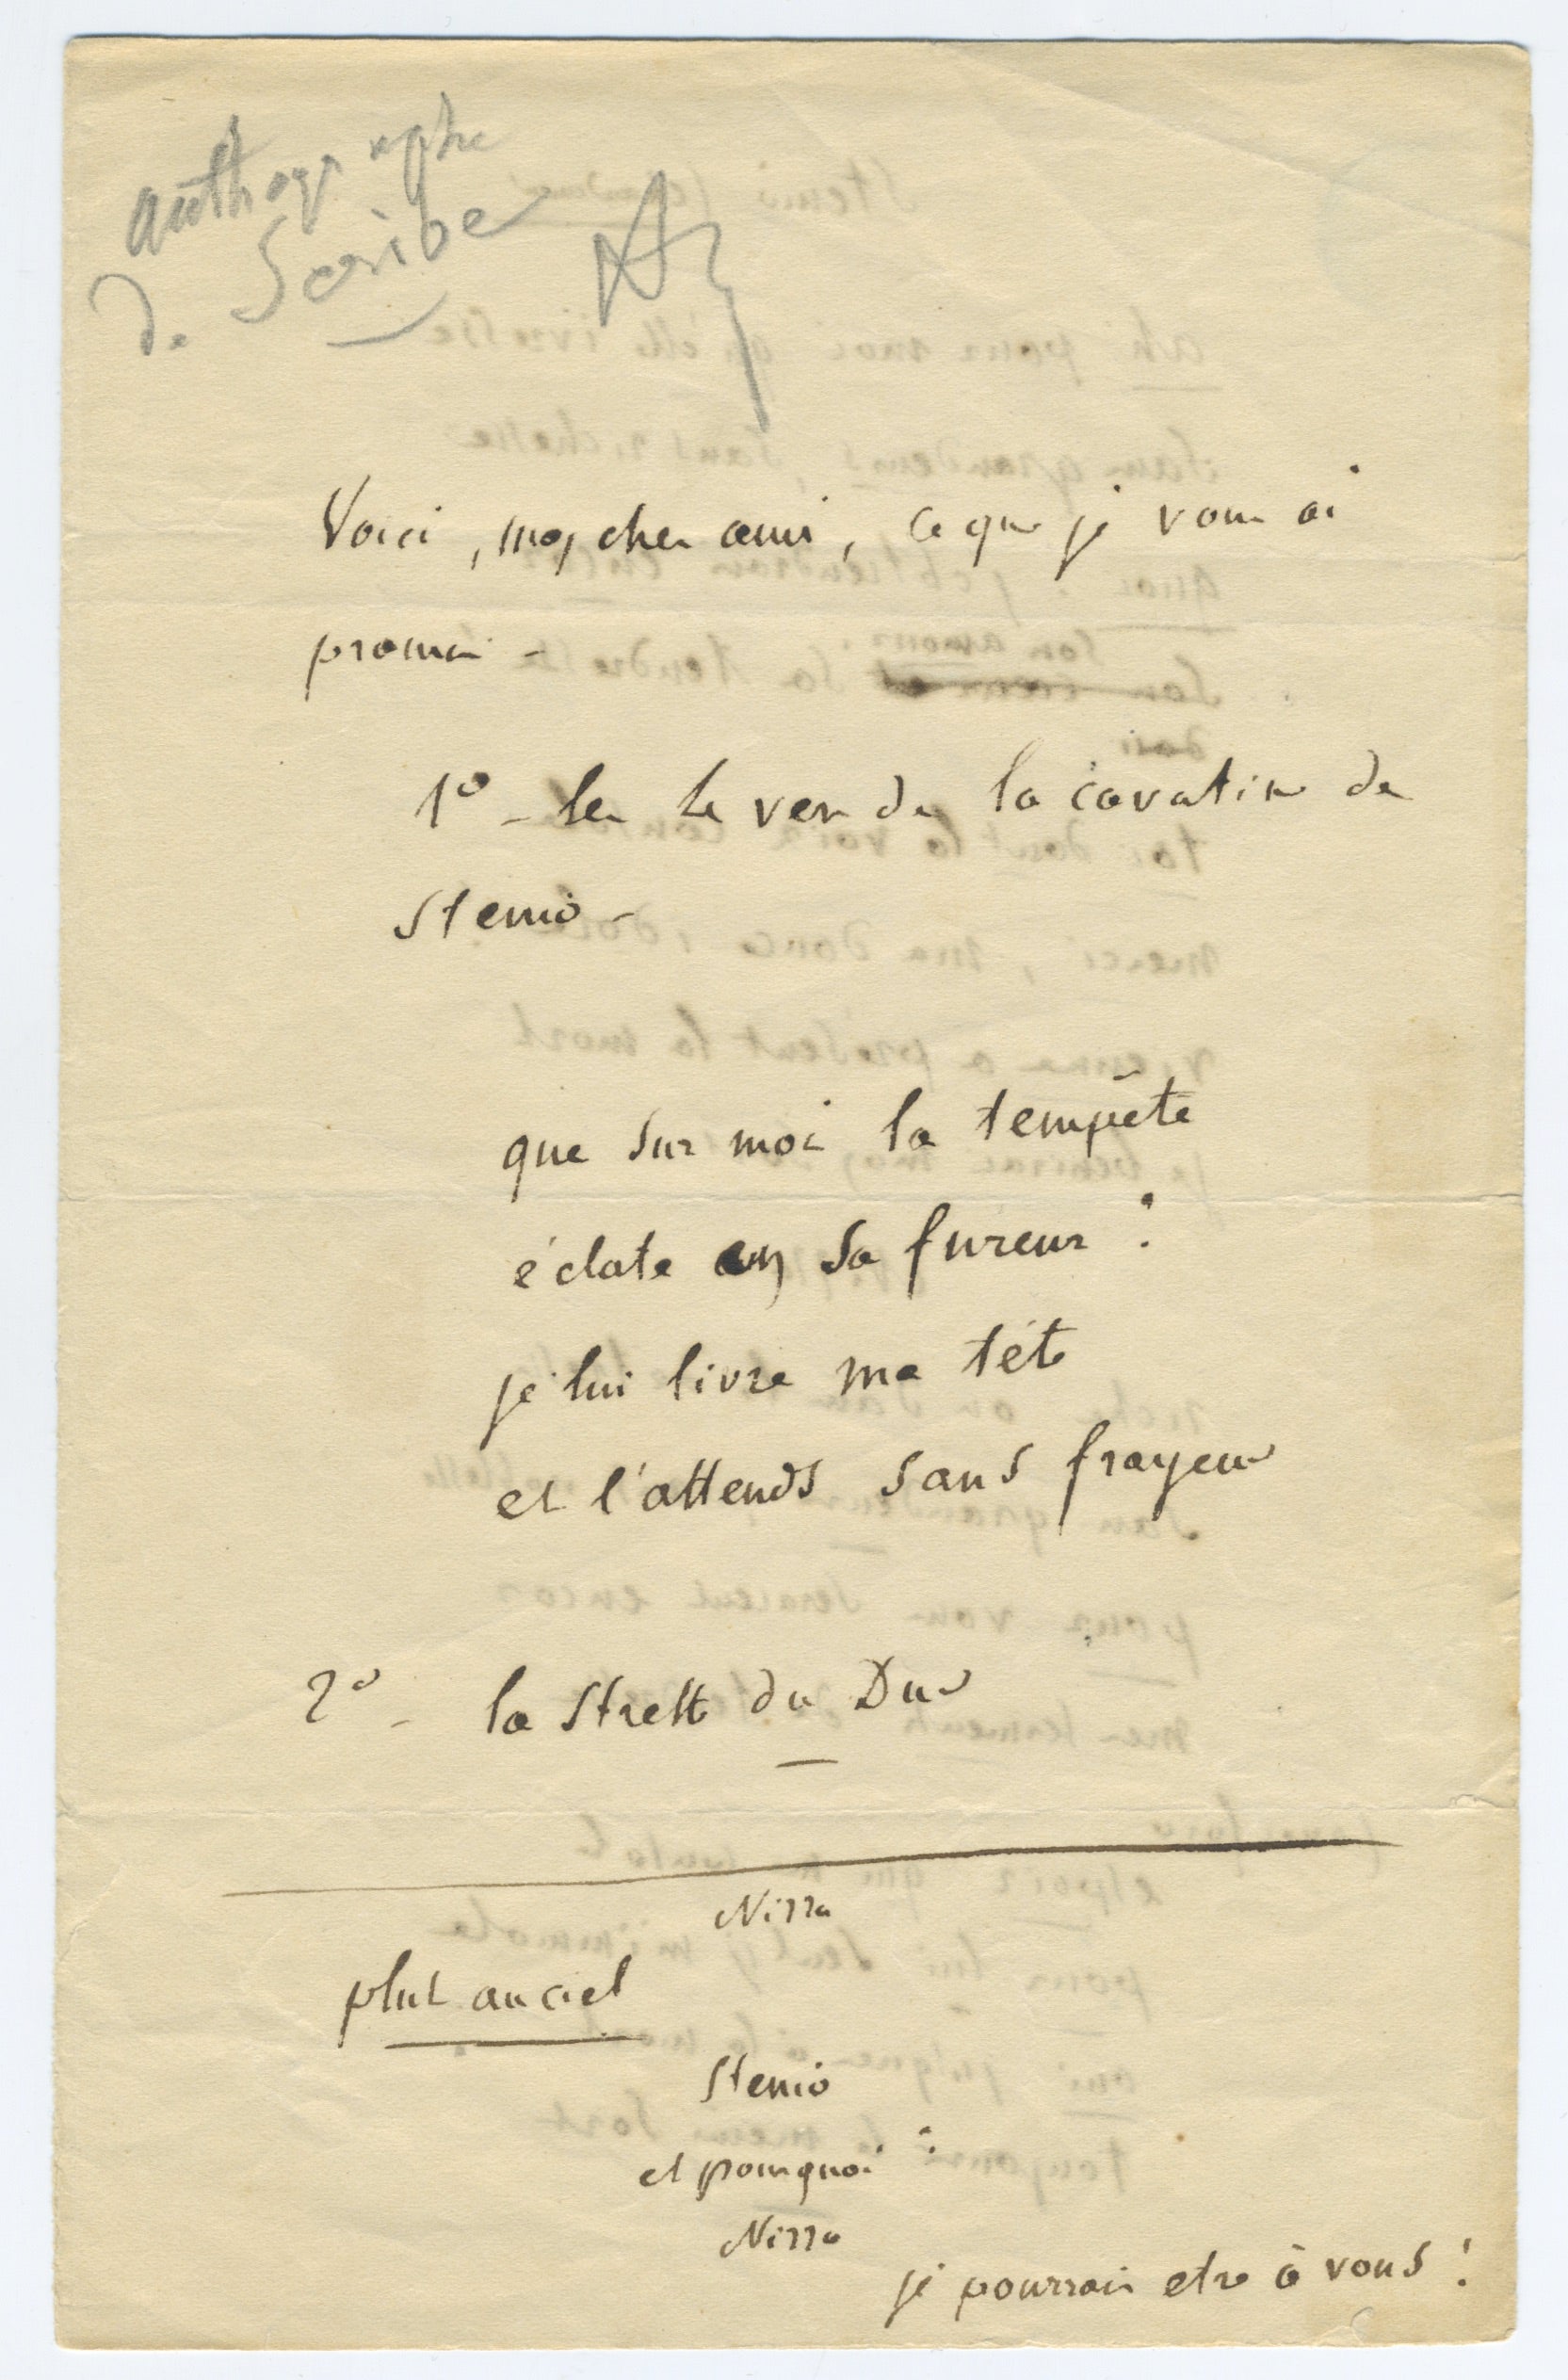 authographe
de Scribe
Voici, mon cher ami, ce que je vous ai
promis -
1º - les de vers de la cavatine de
Stenio -
que sur moi la tempête
éclate en sa fureur !
je lui livre ma tête
et l'attends sans frayeur
2º - la strette du Duo
Nizza
plut au ciel
Stenio
et pourquoi ?
Nizza
je pourrais etre à vous !